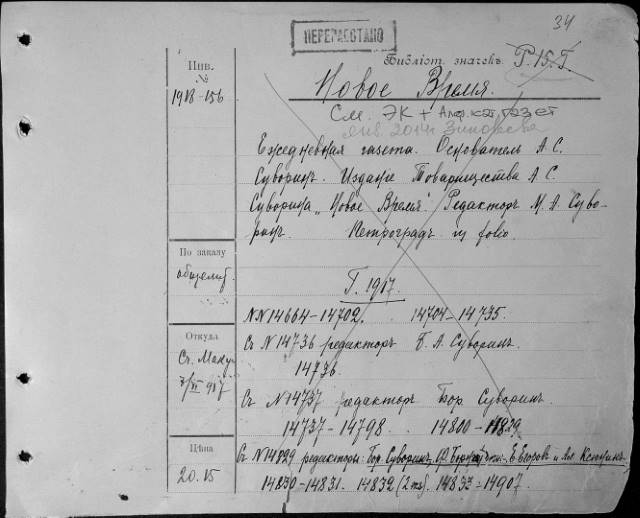 34
ПЕРЕРАБОТАНО
Библіот. значекъ. Р. 15. Г.
Инв. №
1918-156
Новое Время.
См. ЭК + Алф. кат газет
янв 2014 Зиновьева
Ежедневная газета. Основатель А. С.
Суворинъ. Изданіе Товарищества А. С.
Суворина „Новое Время“. Редакторъ М. А. Суво-
ринъ. Петроградъ in folio.
По заказу
Г. 1917.
NN 14664-14702. 14704-14735.
Откуда
Съ N 14736 редакторъ Б. А. Суворинъ.
14736.
Съ N 14737 редакторъ Бор. Суворинъ.
14737-14798. 14800-14829.
Цѣна
20.15
Съ N 14829 редакторы: Бор. Суворинъ, Е. Егоровъ и
14830-14831. 14832 (2 экз). 14833-14907.